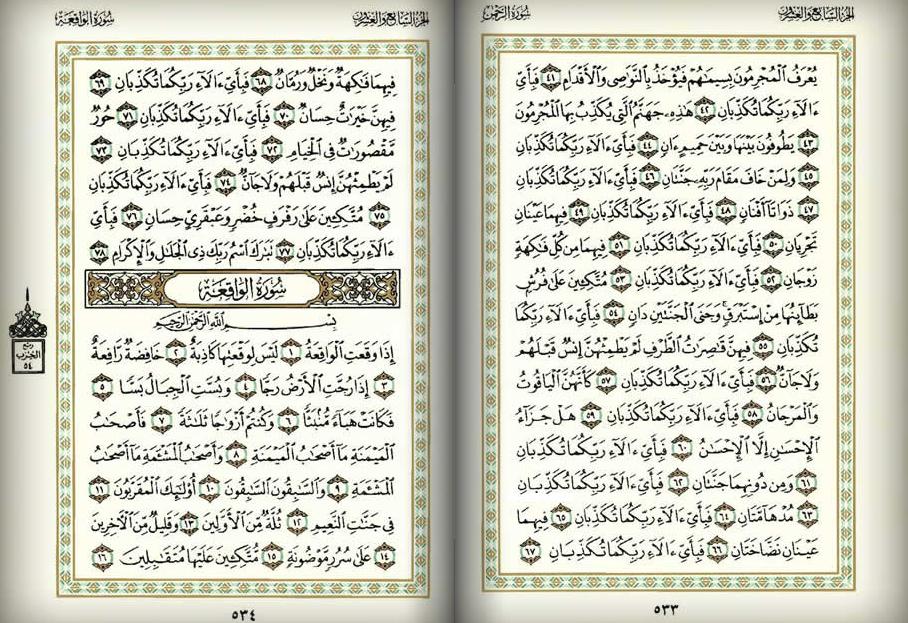 الجزء السابع والعشرون سُورَةُ الرَّحْمَٰن
يُعْرَفُ الْمُجْرِمُونَ بِسِيمَٰهُمْ فَيُؤْخَذُ بِالنَّوَٰصِي وَالْأَقْدَامِ ٤١ فَبِأَيِّ
ءَالَآءِ رَبِّكُمَا تُكَذِّبَانِ ٤٢ هَٰذِهِۦ جَهَنَّمُ الَّتِي يُكَذِّبُ بِهَا الْمُجْرِمُونَ
٤٣ يَطُوفُونَ بَيْنَهَا وَبَيْنَ حَمِيمٍ ءَانٍ ٤٤ فَبِأَيِّ ءَالَآءِ رَبِّكُمَا تُكَذِّبَانِ
٤٥ وَلِمَنْ خَافَ مَقَامَ رَبِّهِۦ جَنَّتَانِ ٤٦ فَبِأَيِّ ءَالَآءِ رَبِّكُمَا تُكَذِّبَانِ
٤٧ ذَوَاتَآ أَفْنَانٍ ٤٨ فَبِأَيِّ ءَالَآءِ رَبِّكُمَا تُكَذِّبَانِ ٤٩ فِيهِمَا عَيْنَانِ
تَجْرِيَانِ ٥٠ فَبِأَيِّ ءَالَآءِ رَبِّكُمَا تُكَذِّبَانِ ٥١ فِيهِمَا مِن كُلِّ فَٰكِهَةٍ
زَوْجَانِ ٥٢ فَبِأَيِّ ءَالَآءِ رَبِّكُمَا تُكَذِّبَانِ ٥٣ مُتَّكِـِٔينَ عَلَىٰ فُرُشٍۭ
بَطَآئِنُهَا مِنْ إِسْتَبْرَقٍ ۚ وَجَنَى الْجَنَّتَيْنِ دَانٍ ٥٤ فَبِأَيِّ ءَالَآءِ رَبِّكُمَا
تُكَذِّبَانِ ٥٥ فِيهِنَّ قَٰصِرَٰتُ الطَّرْفِ لَمْ يَطْمِثْهُنَّ إِنسٌ قَبْلَهُمْ
وَلَا جَآنٌّ ٥٦ فَبِأَيِّ ءَالَآءِ رَبِّكُمَا تُكَذِّبَانِ ٥٧ كَأَنَّهُنَّ الْيَاقُوتُ
وَالْمَرْجَانُ ٥٨ فَبِأَيِّ ءَالَآءِ رَبِّكُمَا تُكَذِّبَانِ ٥٩ هَلْ جَزَآءُ
الْإِحْسَٰنِ إِلَّا الْإِحْسَٰنُ ٦٠ فَبِأَيِّ ءَالَآءِ رَبِّكُمَا تُكَذِّبَانِ
٦١ وَمِن دُونِهِمَا جَنَّتَانِ ٦٢ فَبِأَيِّ ءَالَآءِ رَبِّكُمَا تُكَذِّبَانِ
٦٣ مُدْهَآمَّتَانِ ٦٤ فَبِأَيِّ ءَالَآءِ رَبِّكُمَا تُكَذِّبَانِ ٦٥ فِيهِمَا
عَيْنَانِ نَضَّاخَتَانِ ٦٦ فَبِأَيِّ ءَالَآءِ رَبِّكُمَا تُكَذِّبَانِ ٦٧
٥٣٣
الجزء السابع والعشرون سُورَةُ الوَاقِعَة
فِيهِمَا فَٰكِهَةٌ وَنَخْلٌ وَرُمَّانٌ ٦٨ فَبِأَيِّ ءَالَآءِ رَبِّكُمَا تُكَذِّبَانِ ٦٩
فِيهِنَّ خَيْرَٰتٌ حِسَانٌ ٧٠ فَبِأَيِّ ءَالَآءِ رَبِّكُمَا تُكَذِّبَانِ ٧١ حُورٌ
مَّقْصُورَٰتٌ فِي الْخِيَامِ ٧٢ فَبِأَيِّ ءَالَآءِ رَبِّكُمَا تُكَذِّبَانِ ٧٣
لَمْ يَطْمِثْهُنَّ إِنسٌ قَبْلَهُمْ وَلَا جَآنٌّ ٧٤ فَبِأَيِّ ءَالَآءِ رَبِّكُمَا تُكَذِّبَانِ
٧٥ مُتَّكِـِٔينَ عَلَىٰ رَفْرَفٍ خُضْرٍ وَعَبْقَرِيٍّ حِسَانٍ ٧٦ فَبِأَيِّ
ءَالَآءِ رَبِّكُمَا تُكَذِّبَانِ ٧٧ تَبَٰرَكَ اسْمُ رَبِّكَ ذِي الْجَلَٰلِ وَالْإِكْرَامِ ٧٨
سُورَةُ الوَاقِعَة
بِسْمِ اللَّهِ الرَّحْمَٰنِ الرَّحِيمِ
إِذَا وَقَعَتِ الْوَاقِعَةُ ١ لَيْسَ لِوَقْعَتِهَا كَاذِبَةٌ ٢ خَافِضَةٌ رَّافِعَةٌ
٣ إِذَا رُجَّتِ الْأَرْضُ رَجًّا ٤ وَبُسَّتِ الْجِبَالُ بَسًّا ٥
فَكَانَتْ هَبَآءً مُّنۢبَثًّا ٦ وَكُنتُمْ أَزْوَٰجًا ثَلَٰثَةً ٧ فَأَصْحَٰبُ
الْمَيْمَنَةِ مَآ أَصْحَٰبُ الْمَيْمَنَةِ ٨ وَأَصْحَٰبُ الْمَشْـَٔمَةِ مَآ أَصْحَٰبُ
الْمَشْـَٔمَةِ ٩ وَالسَّٰبِقُونَ السَّٰبِقُونَ ١٠ أُولَٰٓئِكَ الْمُقَرَّبُونَ ١١
فِي جَنَّٰتِ النَّعِيمِ ١٢ ثُلَّةٌ مِّنَ الْأَوَّلِينَ ١٣ وَقَلِيلٌ مِّنَ الْآخِرِينَ
١٤ عَلَىٰ سُرُرٍ مَّوْضُونَةٍ ١٥ مُّتَّكِـِٔينَ عَلَيْهَا مُتَقَٰبِلِينَ ١٦
ربع
الحزب
٥٤
٥٣٤